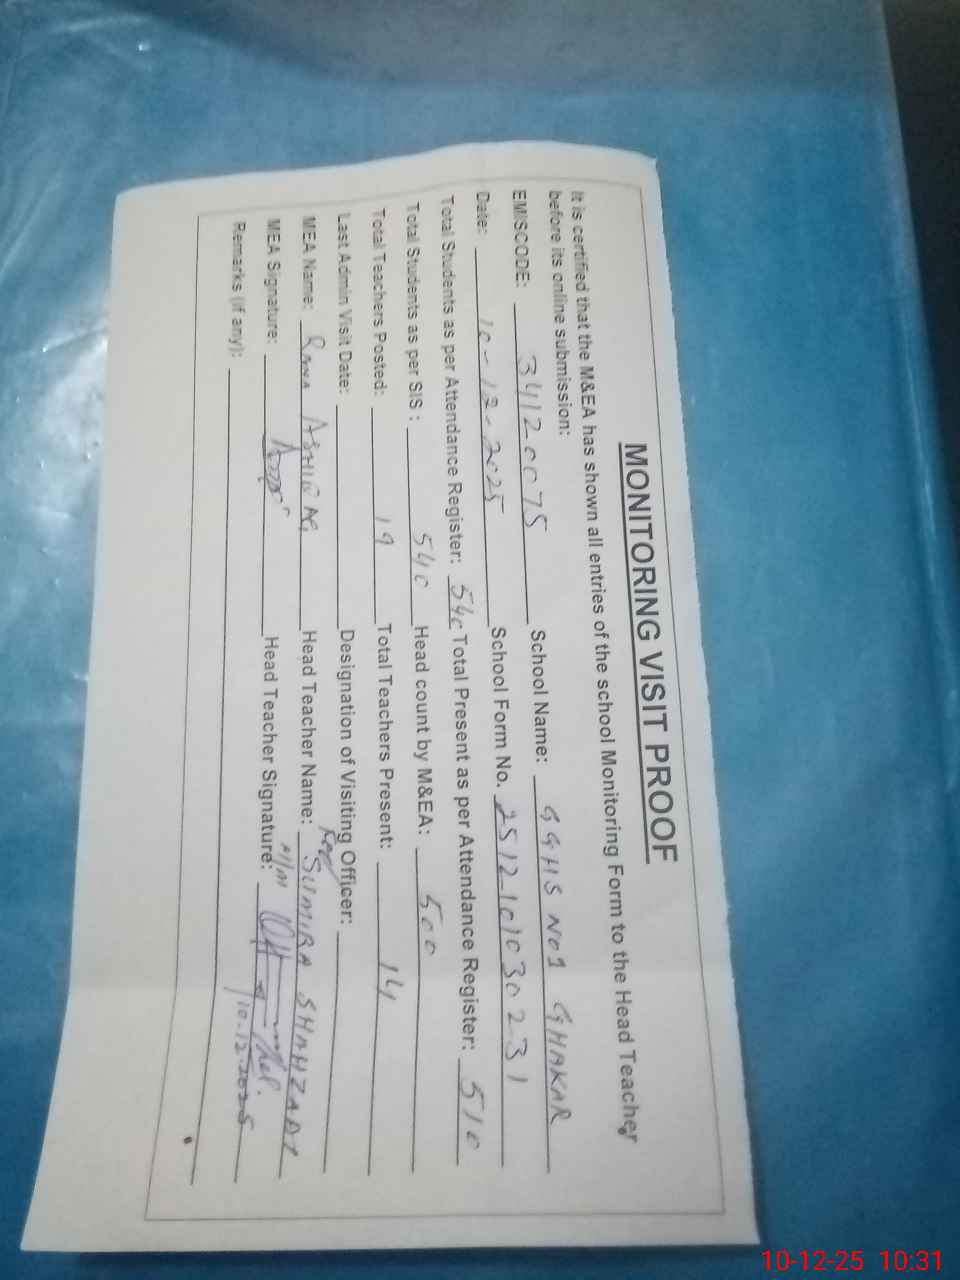 MONITORING VISIT PROOF
It is certified that the M&EA has shown all entries of the school Monitoring Form to the Head Teacher
before its online submission:
EMISCODE: 34120075 School Name: GGHS NO1 GHAKAR
Date: 10-12-2025 School Form No. 2512-101030231
Total Students as per Attendance Register: 540 Total Present as per Attendance Register: 510
Total Students as per SIS : 540 Head count by M&EA: 500
Total Teachers Posted: 19 Total Teachers Present: 14
Last Admin Visit Date: Designation of Visiting Officer:
MEA Name: RANA ASHIQ Head Teacher Name: SUMIRA SHAHZADI
MEA Signature: Head Teacher Signature: 10.12.2025
Remarks (if any):
10-12-25 10:31